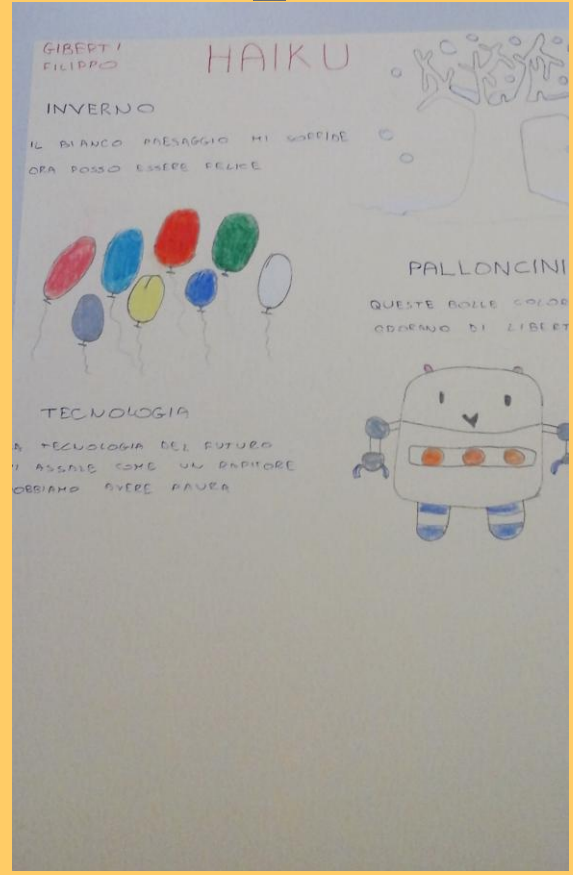 GIBERTI
FILIPPO
HAIKU
INVERNO
IL BIANCO PAESAGGIO MI SORRIDE
ORA POSSO ESSERE FELICE
PALLONCINI
QUESTE BOLLE
ODORANO DI
TECNOLOGIA
TECNOLOGIA DEL FUTURO
ASSALE COME UN RAPITORE
AVERE PAURA